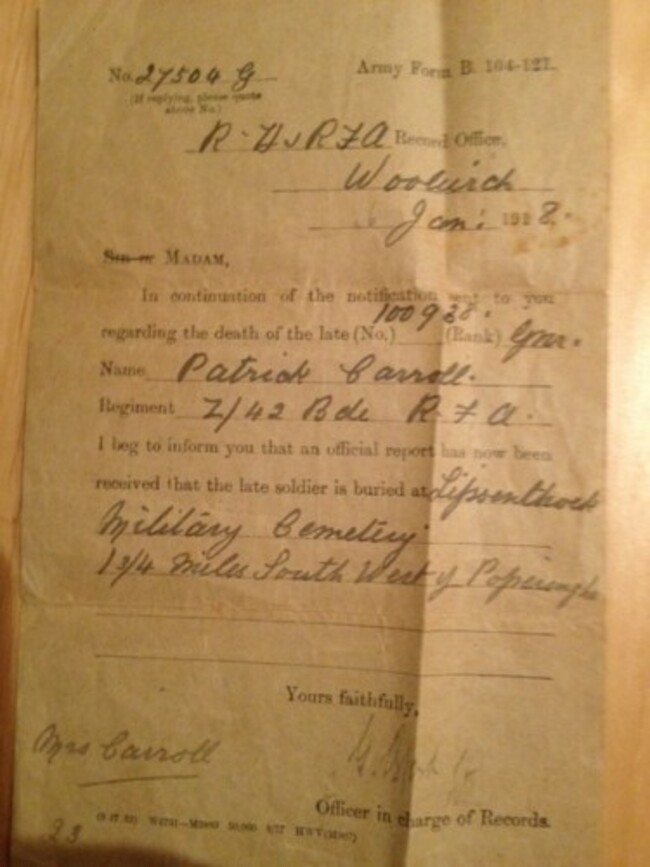 No. 27504 G Army Form B. 104-121.
(If replying, please quote
above No.)
R.H & RFA Record Office,
Woolwich
Jan: 1918.
Sir or MADAM,
In continuation of the notification sent to you
100928.
regarding the death of the late (No.) (Rank) Gnr.
Name Patrick Carroll.
Regiment Z/42 Bde R.F.A.
I beg to inform you that an official report has now been
received that the late soldier is buried at Lijssenthoek
Military Cemetery
1 3/4 Miles South West of Poperinghe
Yours faithfully,
Mrs Carroll
Officer in charge of Records.
23